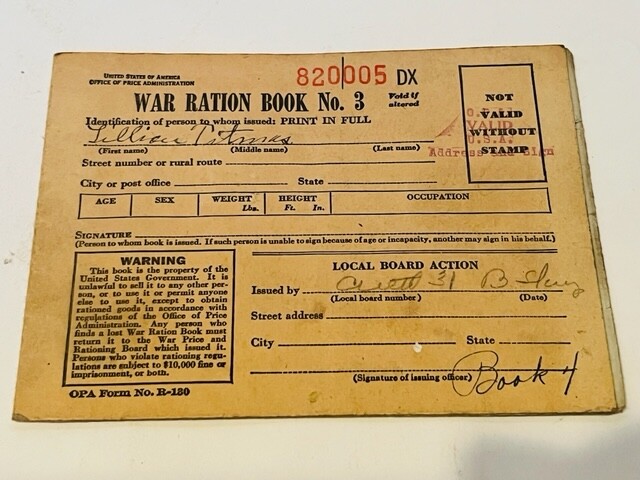 UNITED STATES OF AMERICA
OFFICE OF PRICE ADMINISTRATION
820005 DX
WAR RATION BOOK No. 3
Void if
altered
NOT
VALID
WITHOUT
STAMP
VALID
U.S.A.
Identification of person to whom issued: PRINT IN FULL
(First name) (Middle name) (Last name)
Street number or rural route
City or post office State
AGE SEX WEIGHT Lbs. HEIGHT Ft. In. OCCUPATION
SIGNATURE
(Person to whom book is issued. If such person is unable to sign because of age or incapacity, another may sign in his behalf.)
WARNING
This book is the property of the
United States Government. It is
unlawful to sell it to any other per-
son, or to use it or permit anyone
else to use it, except to obtain
rationed goods in accordance with
regulations of the Office of Price
Administration. Any person who
finds a lost War Ration Book must
return it to the War Price and
Rationing Board which issued it.
Persons who violate rationing regu-
lations are subject to $10,000 fine or
imprisonment, or both.
OPA Form No. R-130
LOCAL BOARD ACTION
Issued by 31
(Local board number) (Date)
Street address
City State
(Signature of issuing officer)
Book 4